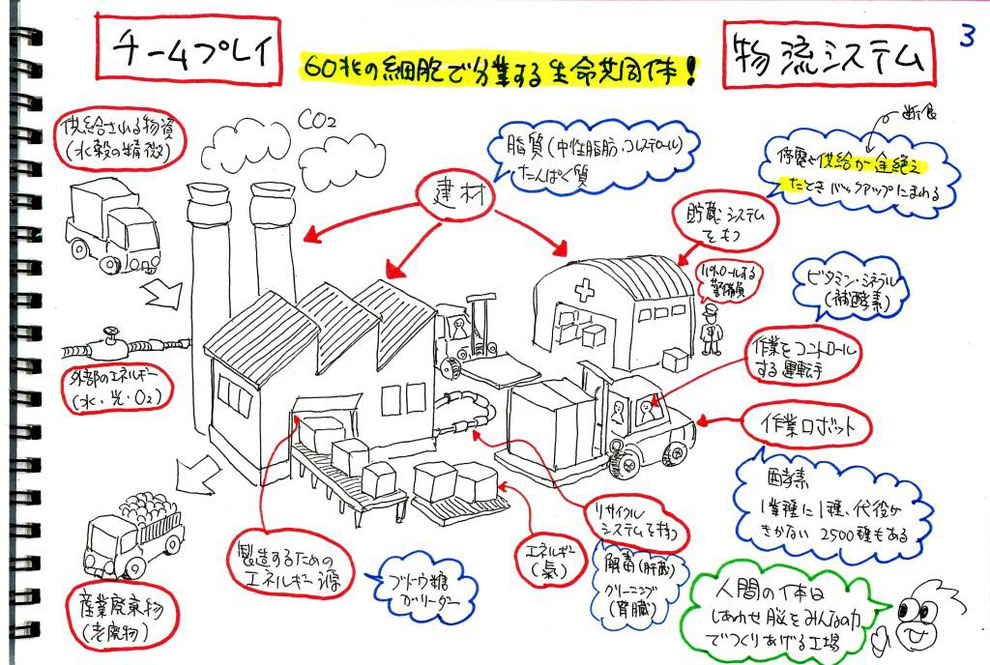 チームプレイ
60兆の細胞で分業する生命共同体!
物流システム
3
供給される物資
(水穀の精微)
CO2
脂質(中性脂肪・コレステロール)
たんぱく質
断食
供給が途絶え
たときバックアップにまわる
建材
貯蔵システム
をもつ
パトロールする
警備員
ビタミン・ミネラル
(補酵素)
外部のエネルギー
(水・光・O2)
作業をコントロール
する運転手
作業ロボット
酵素
1業種に1種、代役が
きかない 2500種もある
製造するための
エネルギー源
ブドウ糖
がリーダー
エネルギー
(気)
リサイクル
システムを持つ
解毒(肝臓)
クリーニング
(腎臓)
産業廃棄物
(老廃物)
人間の体は
しあわせ脳をみんなの力
でつくりあげる工場